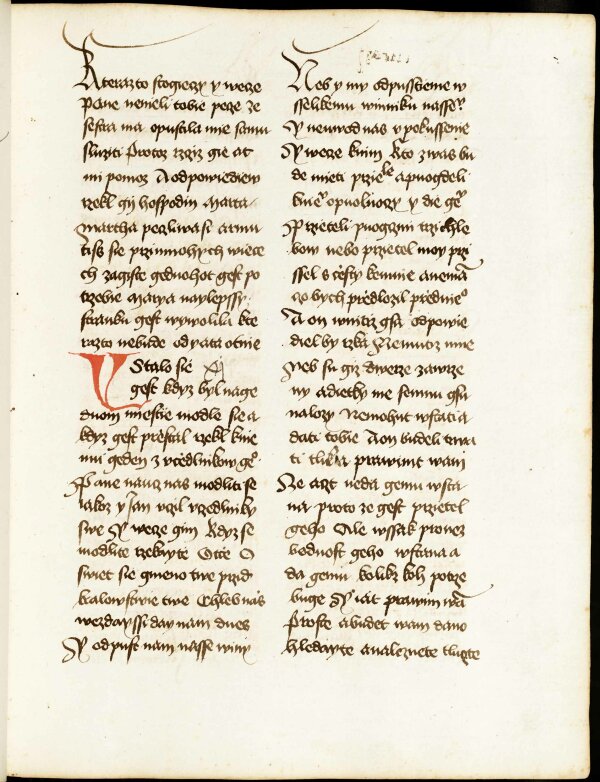 Kterazto stogieczy y wecze
Pane nenieli tobie pecze ze
sestra ma opustala mie samu
slutzti Protoz rzcziz gie at
mi pomoz A odpowiediew
rzekl gij hospodin Marta
Martha pecziwa si a rmu
tiss sie przimnohych wiecie
ch zagiste gednohot gest po
trzebie Marya naylepssy
stranku gest wywolila kte
razto nebude odyata otnie
Stalo sie XI
gest kdyz byl nage
dnom miestie modle sie a
kdyz gest prestal rzekl knie
mu geden z vcedlnikow geo
Pane naucz nas modliti se
iakoz y Jan vczil vczedlniky
swe Y wecze gim Kdyz se
modlite rzeknyte Otcze O
swiet sie gmeno twe przid
kralowstwie twe Chleb nas
wezdayssi day nam dnes
Y odpust nam nasse winy
Neb y my odpusstieme w
sselikemu winniku nasseo
Y neuwod nas v pokussenie
Y wecze knim Kto z was bu
de mieti przietele a puogdeli
kneo opuolnoczy y die geo
Przieteli puogczm trzi chle
bow nebo przietel moy przi
ssel s cesty kemnie a nemam
czo bych predlozil predneo
A on wnitrz gsa odpowie
diel by rzka Nemutiz mne
Neb su giz dwerze zawrze
ny a dietky me semnu gsu
nalozy Nemohut wstati a
dati tobie A on budeli trwa
ti tluka prawimt wam
Ne azt neda gemu wsta
na proto ze gest przietel
geho Ale wssak pronez
bednost geho wstana a
da gemu kolikz kolz potrze
buge Y iat prawim wam
Proste a budet wam dano
hledayte a naleznete tluczte